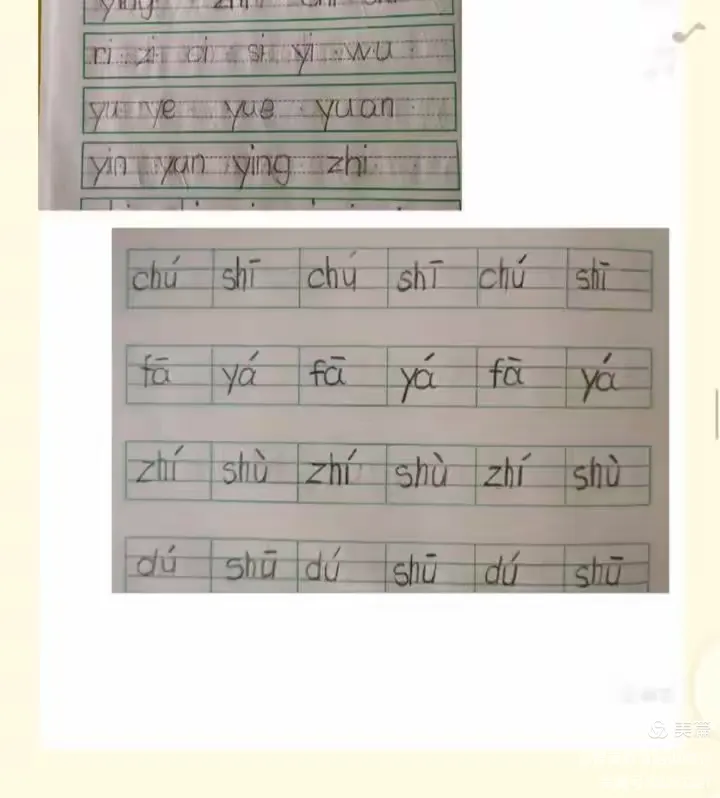 ri zi ci si yi wu
yu ye yue yuan
yin yun ying zhi
chú shī chú shī chú shī
fā yá fā yá fā yá
zhí shù zhí shù zhí shù
dú shū dú shū dú shū
美篇